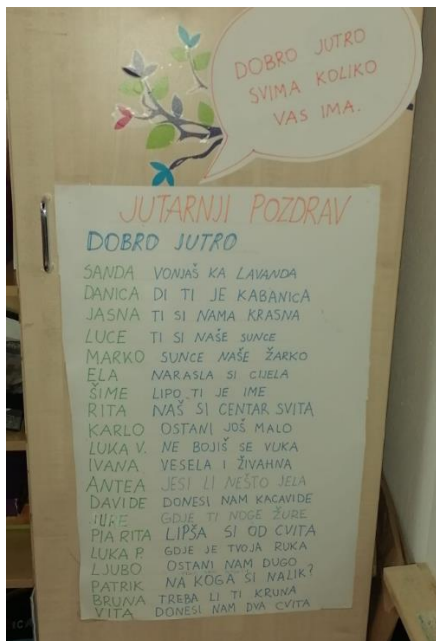 DOBRO JUTRO
SVIMA KOLIKO
VAS IMA.
JUTARNJI POZDRAV
DOBRO JUTRO
SANDA VONJAŠ KA LAVANDA
DANICA DI TI JE KABANICA
JASNA TI SI NAMA KRASNA
LUCE TI SI NAŠE SUNCE
MARKO SUNCE NAŠE ŽARKO
ELA NARASLA SI CIJELA
ŠIME LIPO TI JE IME
RITA NAŠ SI CENTAR SVITA
KARLO OSTANI JOŠ MALO
LUKA V. NE BOJIŠ SE VUKA
IVANA VESELA I ŽIVAHNA
ANTEA JESI LI NEŠTO JELA
DAVIDE DONESI NAM KACAVIDE
JURE GDJE TI NOGE ŽURE
PIA RITA LIPŠA SI OD CVITA
LUKA P. GDJE JE TVOJA RUKA
LJUBO OSTANI NAM DUGO
PATRIK NA KOGA SI NALIK?
BRUNA TREBA LI TI KRUNA
VITA DONESI NAM DVA CVITA